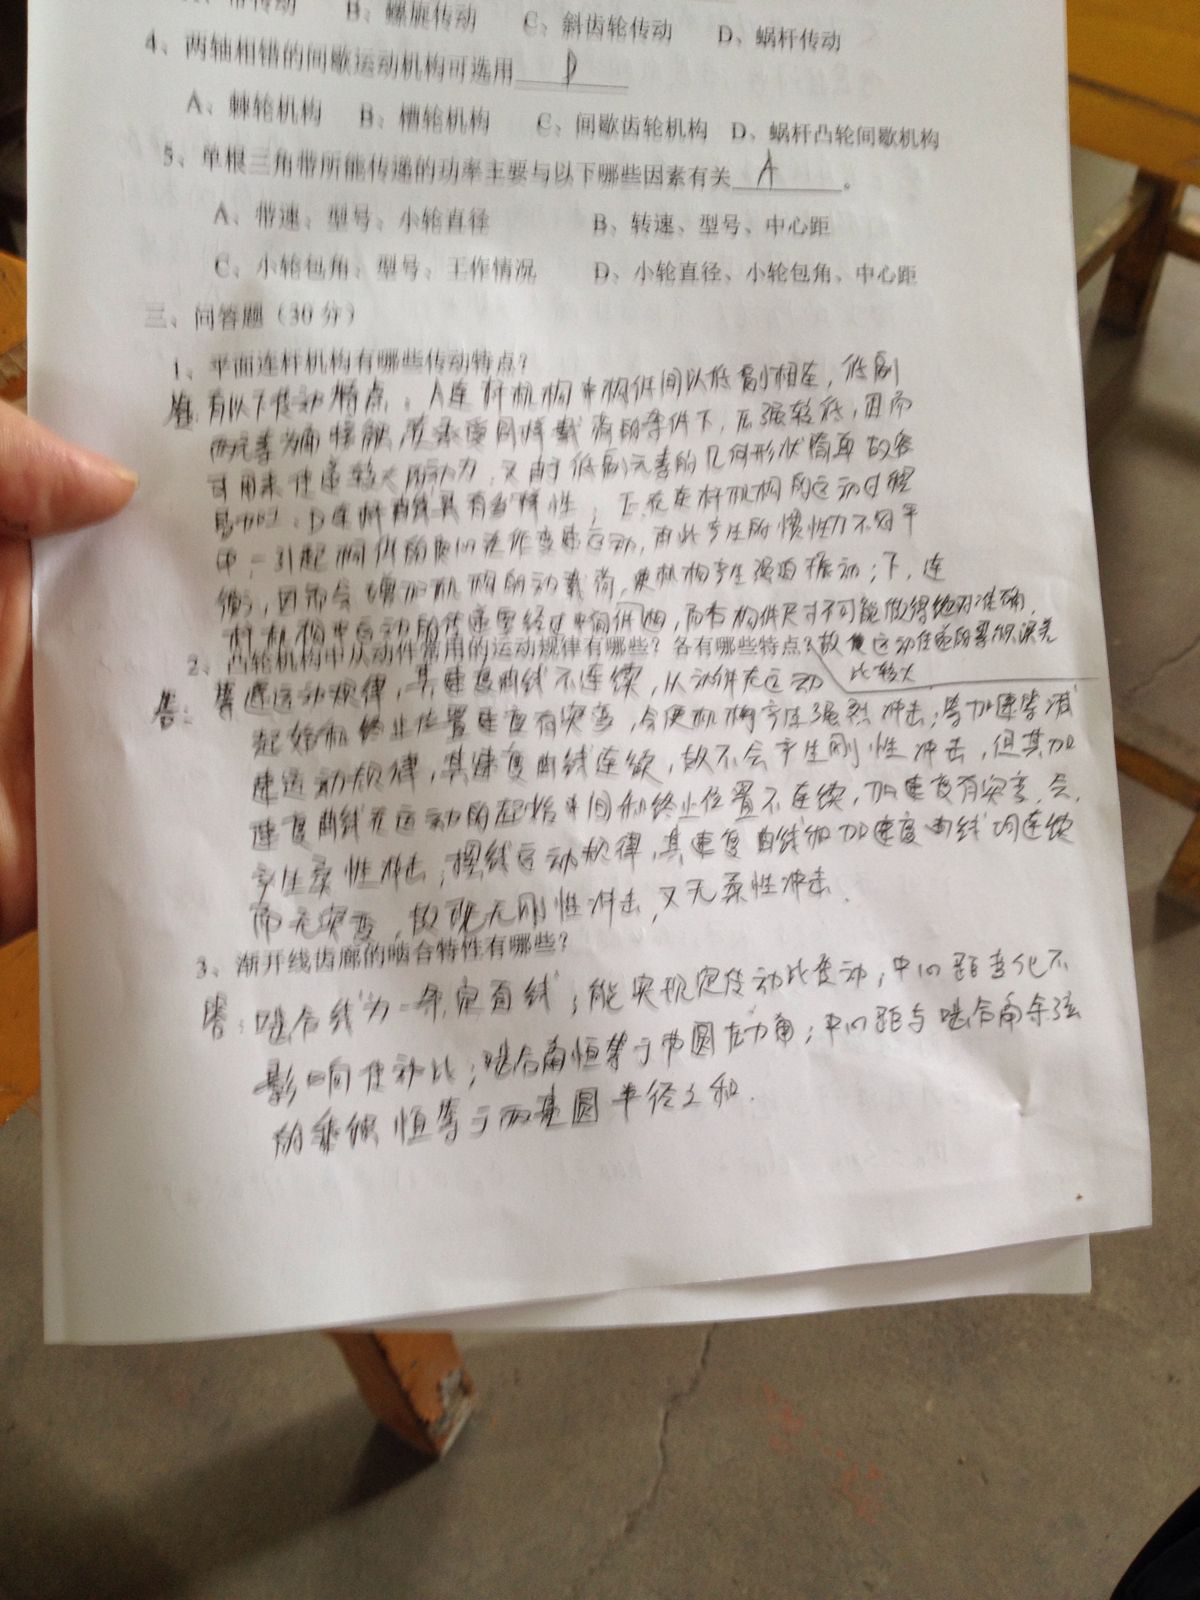 带传动 B、螺旋传动 C、斜齿轮传动 D、蜗杆传动
4、两轴相错的间歇运动机构可选用 D
A、棘轮机构 B、槽轮机构 C、间歇齿轮机构 D、蜗杆凸轮间歇机构
5、单根三角带所能传递的功率主要与以下哪些因素有关 A 。
A、带速、型号、小轮直径 B、转速、型号、中心距
C、小轮包角、型号、工作情况 D、小轮直径、小轮包角、中心距
三、问答题(30分)
1、平面连杆机构有哪些传动特点?
有以下传动特点:A连杆机构中构件间以低副相连,低副
两元素为面接触,在承受同样载荷的条件下,压强较低,因而
可用来传递较大的动力,又由于低副元素的几何形状简单故容
易加工;
中,引起构件的 变速运动,由此产生的惯性力不好平
衡,因而会增加机构的动载荷,使机构产生强迫振动;下,连
杆机构中运动的传递要经过中间 ,而各构件尺寸不可能做得绝对准确,
2、凸轮机构中从动件常用的运动规律有哪些?各有哪些特点? 故使运动传递的累积误差
比较大
答:等速运动规律,其速度曲线不连续,从动件在运动
起始和终止位置速度有突变,会使机构产生强烈冲击;等加速等减
速运动规律,其速度曲线连续,故不会产生刚性冲击,但其加
速度曲线在运动的起始中间和终止位置不连续,加速度有突变,会
产生柔性冲击;摆线运动规律,其速度曲线和加速度曲线均连续
而无突变,故既无刚性冲击,又无柔性冲击.
3、渐开线齿廓的啮合特性有哪些?
答:啮合线为一条定直线;能实现定传动比传动;中心距变化不
影响传动比;啮合角恒等于节圆压力角;中心距与啮合角余弦
的乘积恒等于两基圆半径之和.